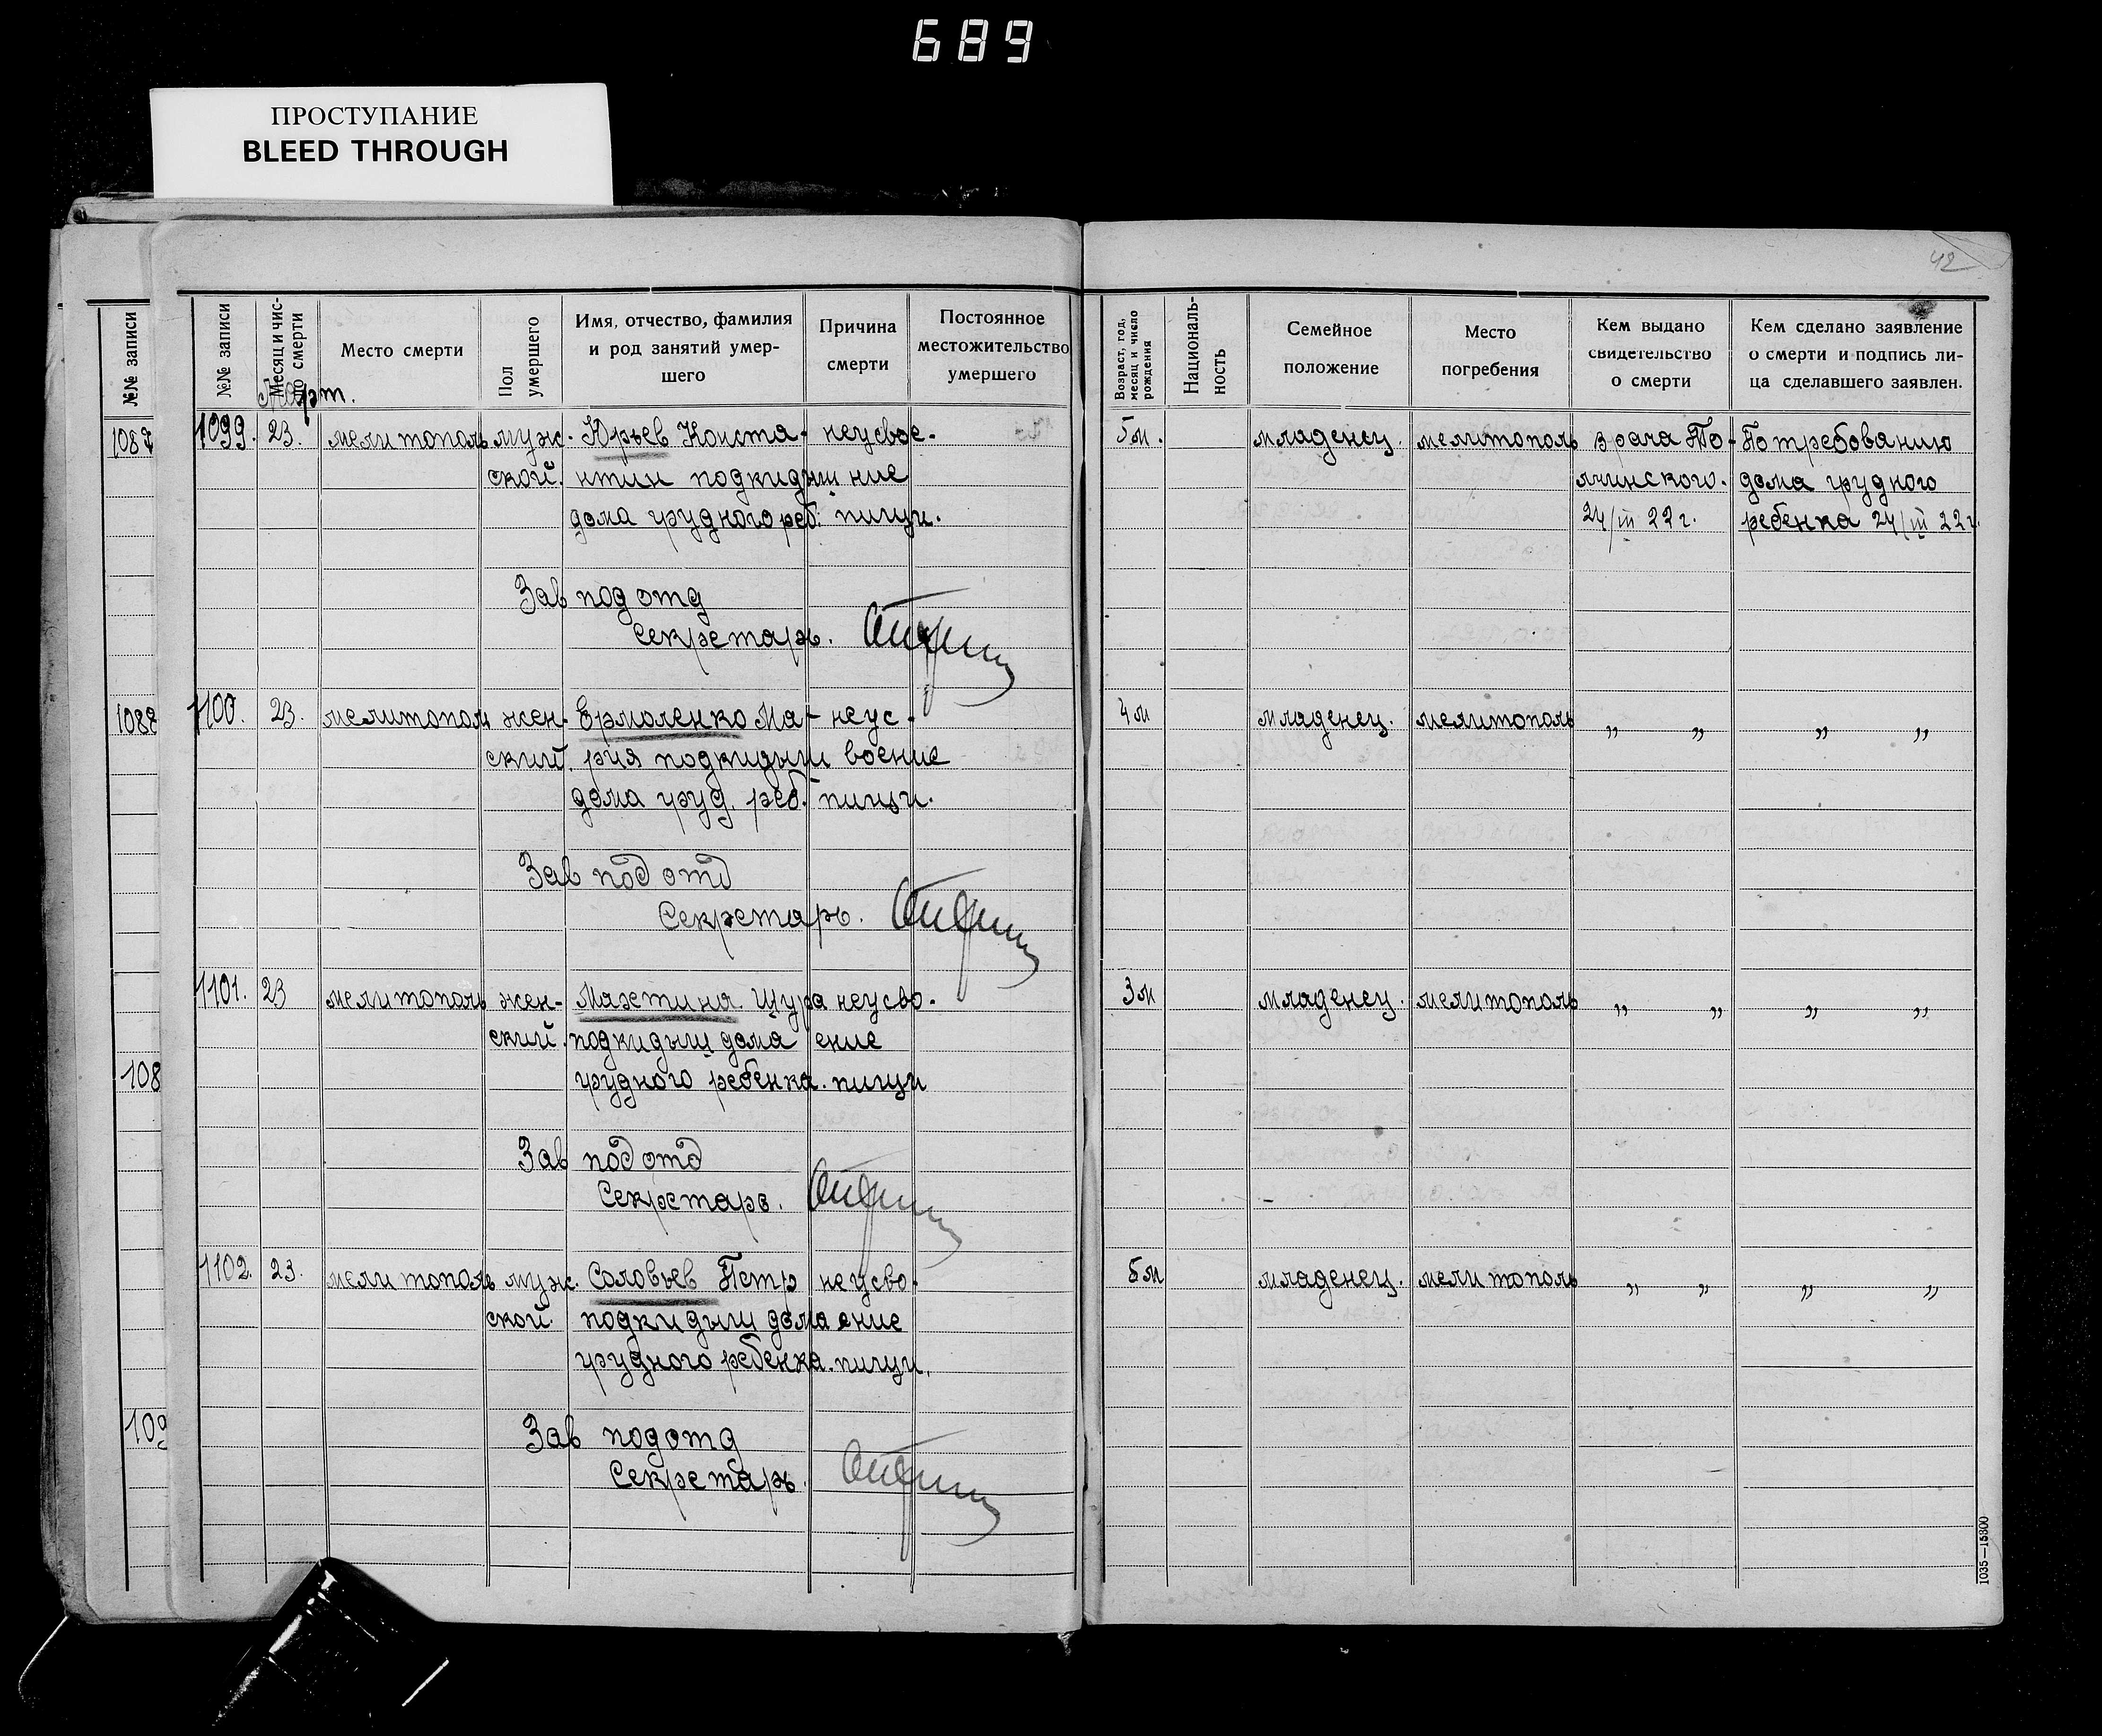 689
ПРОСТУПАНИЕ
BLEED THROUGH
42
№№ записи
№№ записи
Месяц и чис-
ло смерти
Место смерти
Пол
умершего
Имя, отчество, фамилия
и род занятий умер-
шего
Причина
смерти
Постоянное
местожительство
умершего
Возраст, год,
месяц и число
рождения
Националь-
ность
Семейное
положение
Место
погребения
Кем выдано
свидетельство
о смерти
Кем сделано заявление
о смерти и подпись ли-
ца сделавшего заявлен.
Март.
1099. 23. мелитополь муж. Юрьев Конста- неусвое- 5м. младенец. мелитополь врача По требованию
ской. нтин подкидыш ние дома грудного
дома грудного реб. пищи. 24/III 22 г. ребенка 24/III 22 г.
Зав подотд
Секретарь.
1100. 23. мелитополь жен- Ермоленко Ма- неус- 4м младенец. мелитополь " " " "
ский. рия подкидыш воение
дома груд. реб. пищи.
Зав подотд
Секретарь.
1101. 23 мелитополь жен- Шура неусво- 3м младенец. мелитополь " " " "
ский. подкидыш дома ение
грудного ребенка. пищи
108
Зав подотд
Секретарь.
1102. 23. мелитополь муж. Соловьев Петр неусво- 5м младенец. мелитополь " " " "
ской. подкидыш дома ение
грудного ребенка. пищи.
109
Зав подотд
Секретарь.
1035—15300